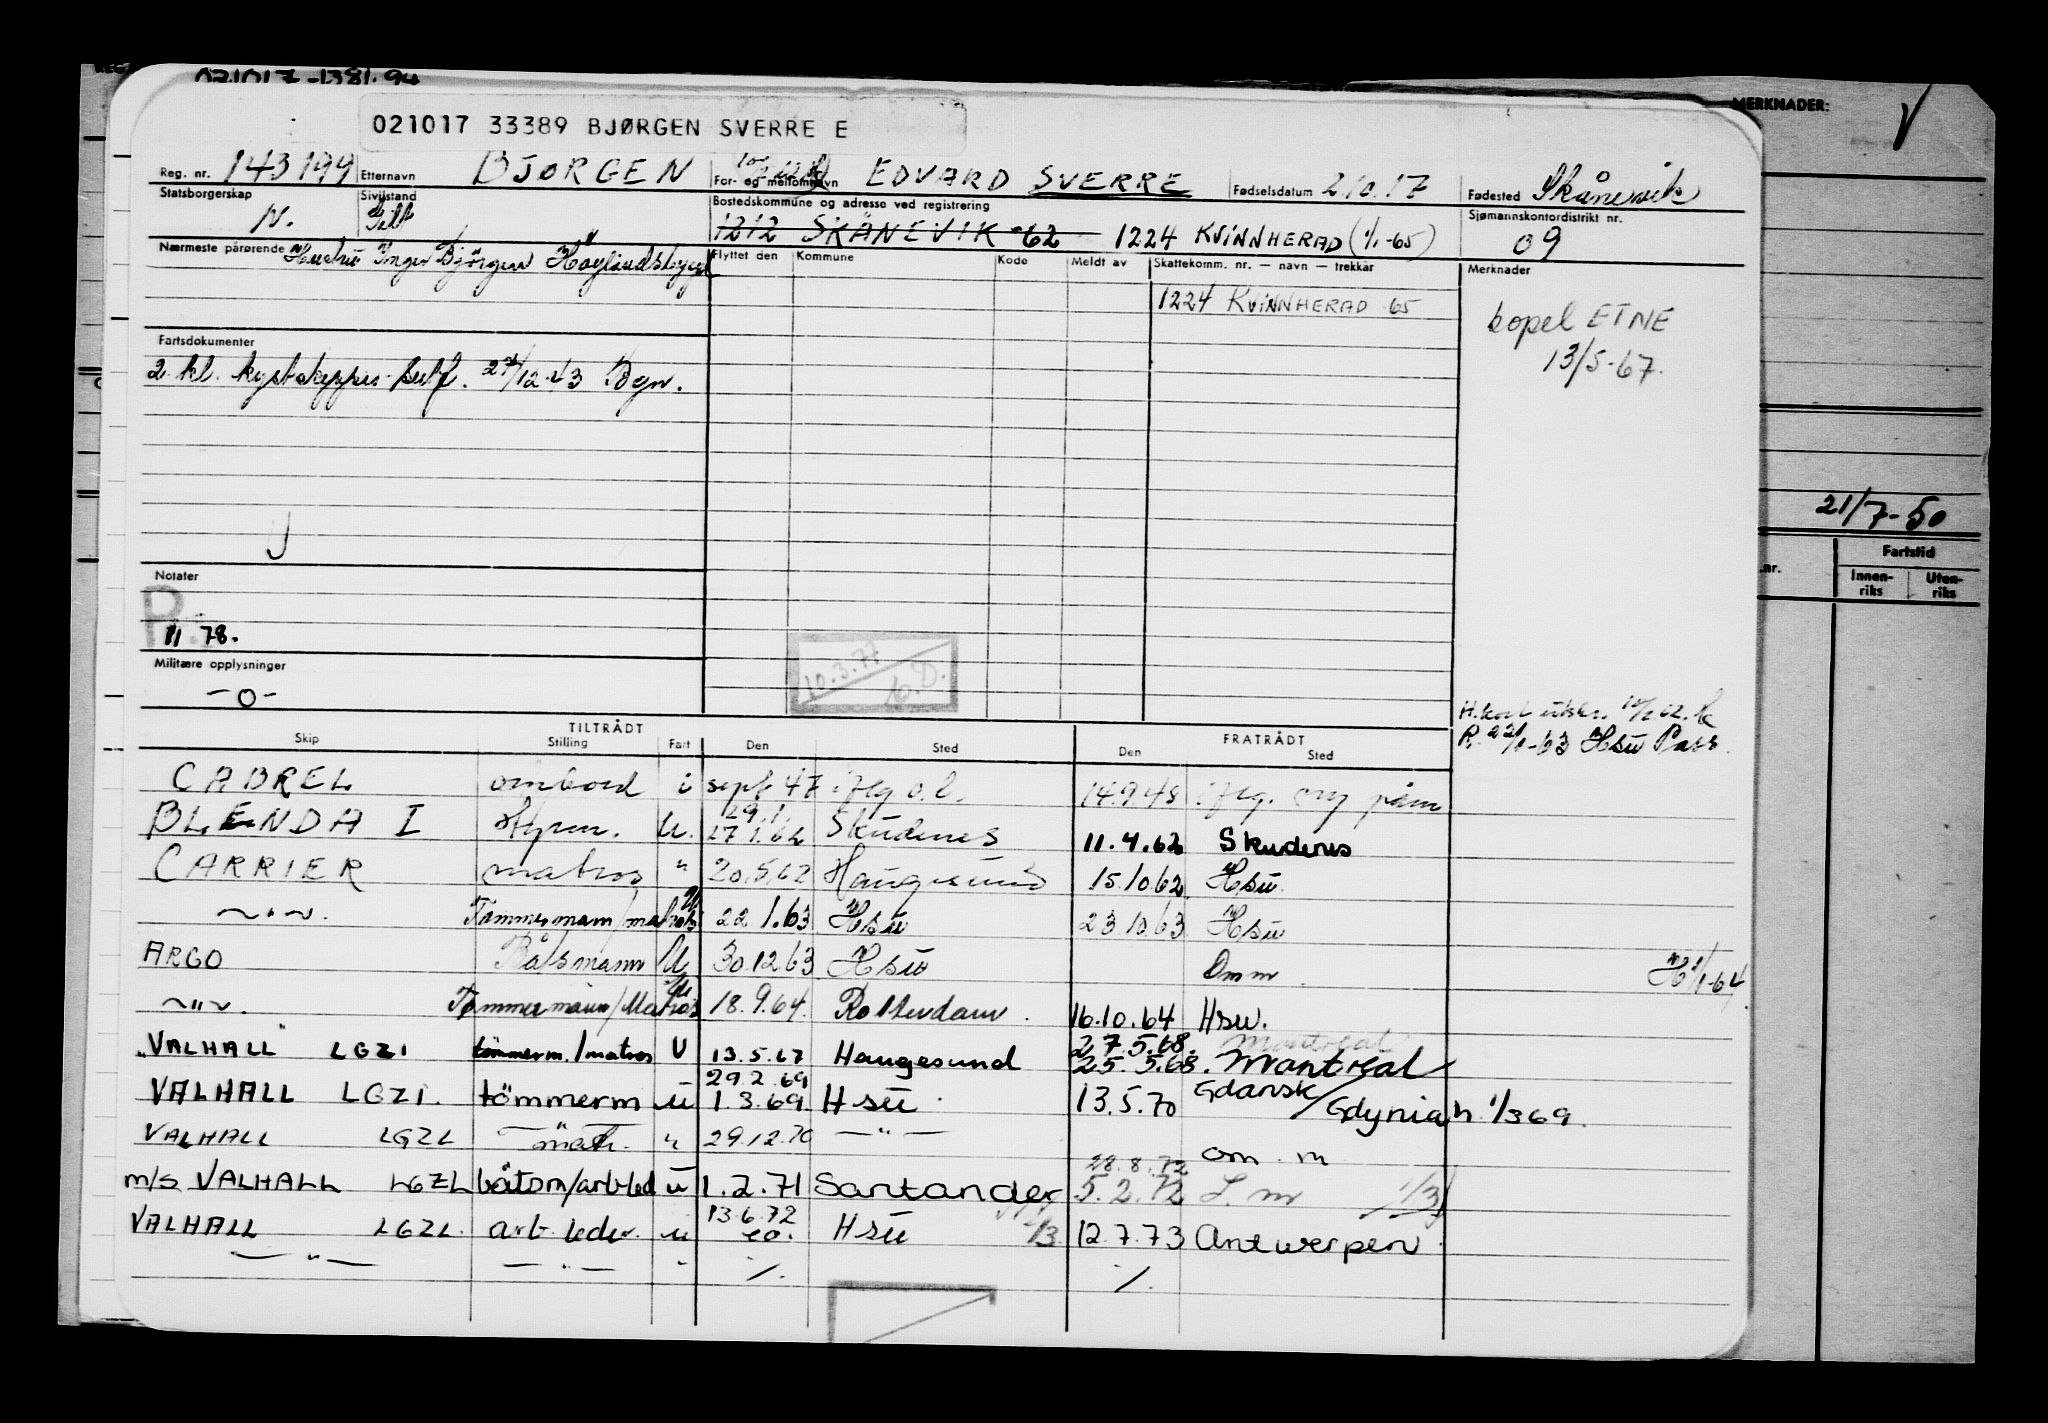 021017 33389 BJØRGEN SVERRE E
MERKNADER:
Reg. nr. 143199 Etternavn BJØRGEN For- og mellomnavn EDVARD SVERRE Fødselsdatum 2.10.17 Fødested Skånevik
Statsborgerskap N. Sivilstand Gift Bostedskommune og adresse ved registrering 1212 SKÅNEVIK -62 1224 KVINNHERAD (1/1-65) Sjømannskontordistrikt nr. 09
Nærmeste pårørende Hustru Inger Bjørgen Høylandsbygd
Flyttet den Kommune Kode Meldt av Skattekomm. nr. — navn — trekkår Merknader
1224 KVINNHERAD 65
bopel ETNE
13/5-67.
Fartsdokumenter
2. kl. kystskippers sertf. 12 43 Bgn.
21/7-50
Fartstid
nr. Innen-riks Uten-riks
Notater
R
11 78.
10.3.77
Militære opplysninger
-0-
H.kort utskr. 62.
R. 63 Hsu Pass
TILTRÅDT FRATRÅDT
Skip Stilling Fart Den Sted Den Sted
CABREL ombord i sept 47 14.9.48
BLENDA I Styrm. U. 29.1. 27 1.62 Skudenes 11.4.62 Skudenes
CARRIER matros " 20.5.62 Haugesund 15.10.62 Hsu.
—"—. Tømmermann/matros U 22 1.63 Hsu 23 10.63 Hsu
ARGO Båtsmann U 30.12 63 Hsu Omm H 1/1-64
—"—. Tømmermann/Matros U 18.9.64. Rotterdam. 16.10.64 Hsu.
"VALHALL" LGZI tømmerm./matros U 13.5.67 Haugesund 27.5.68. Montreal 25.5.68. Montreal
VALHALL LGZI. tömmerm u 29.2.69 1.3.69 Hsu 13.5.70 Gdansk/Gdynia h 1/369.
VALHALL LGZL matr. " 29.12.70 —"— om. m
m/s VALHALL LGZL båtsm/arb-led u 1.2.71 Santander 28.8.72 5.2.72 L.m 1/3
VALHALL LGZL. arb leder. u 13.6.72 Hsu 1/3 12.7.73 Antwerpen
—"— —"— " %. %.